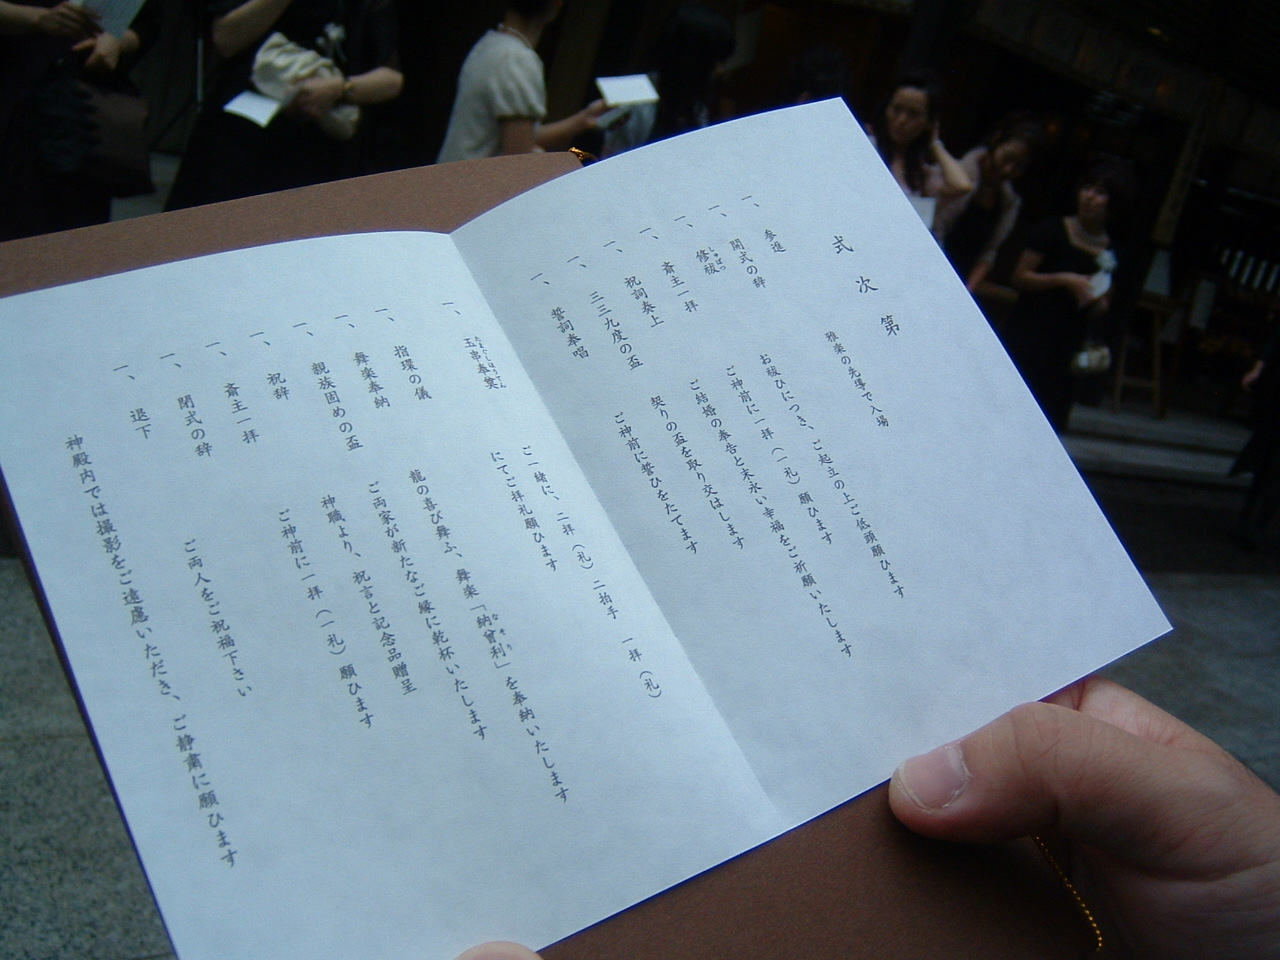 式次第
一、参進 雅楽の先導で入場
一、開式の辞
一、修祓 お祓ひにつき、ご起立の上ご低頭願ひます
しゅばつ
一、斎主一拝 ご神前に一拝（一礼）願ひます
一、祝詞奏上 ご結婚の奉告と末永い幸福をご祈願いたします
一、三三九度の盃 契りの盃を取り交はします
一、誓詞奉唱 ご神前に誓ひをたてます
一、玉串奉奠 ご一緒に、二拝（礼）二拍手 一拝（礼）
たまぐしほうてん
にてご拝礼願ひます
一、指環の儀
一、舞楽奉納 龍の喜び舞ふ、舞楽「納曾利」を奉納いたします
なそり
一、親族固めの盃 ご両家が新たなご縁に乾杯いたします
一、祝辞 神職より、祝言と記念品贈呈
一、斎主一拝 ご神前に一拝（一礼）願ひます
一、閉式の辞
一、退下 ご両人をご祝福下さい
神殿内では撮影をご遠慮いただき、ご静粛に願ひます